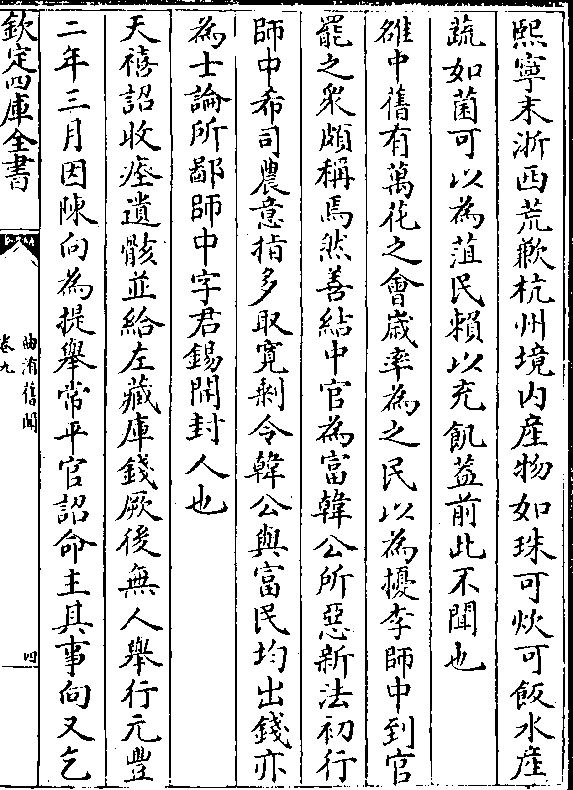 熙寧末浙西荒歉杭州境内産物如珠可炊可飯水産
蔬如菌可以為菹民賴以充飢蓋前此不聞也
雒中舊有萬花之會歲率為之民以為擾李師中到官
罷之衆頗稱焉然善結中官為富韓公所惡新法初行
師中希司農意指多取寛剰令韓公與富民均出錢亦
為士論所鄙師中字君錫開封人也
天禧詔收瘞遺骸並給左藏庫錢厥後無人舉行元豐
二年三月因陳向為提舉常平官詔命主其事向又乞
欽定四庫全書
曲洧舊聞
卷九
四